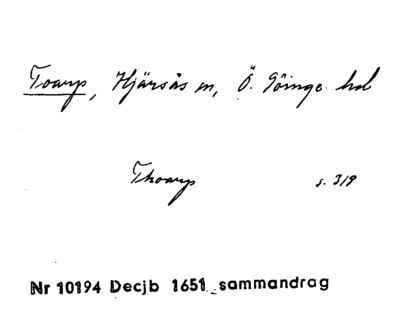 Toarp, Hjärsås sn, Ö. Göinge hd
Thoarp s. 319
Nr 10194 Decjb 1651 sammandrag